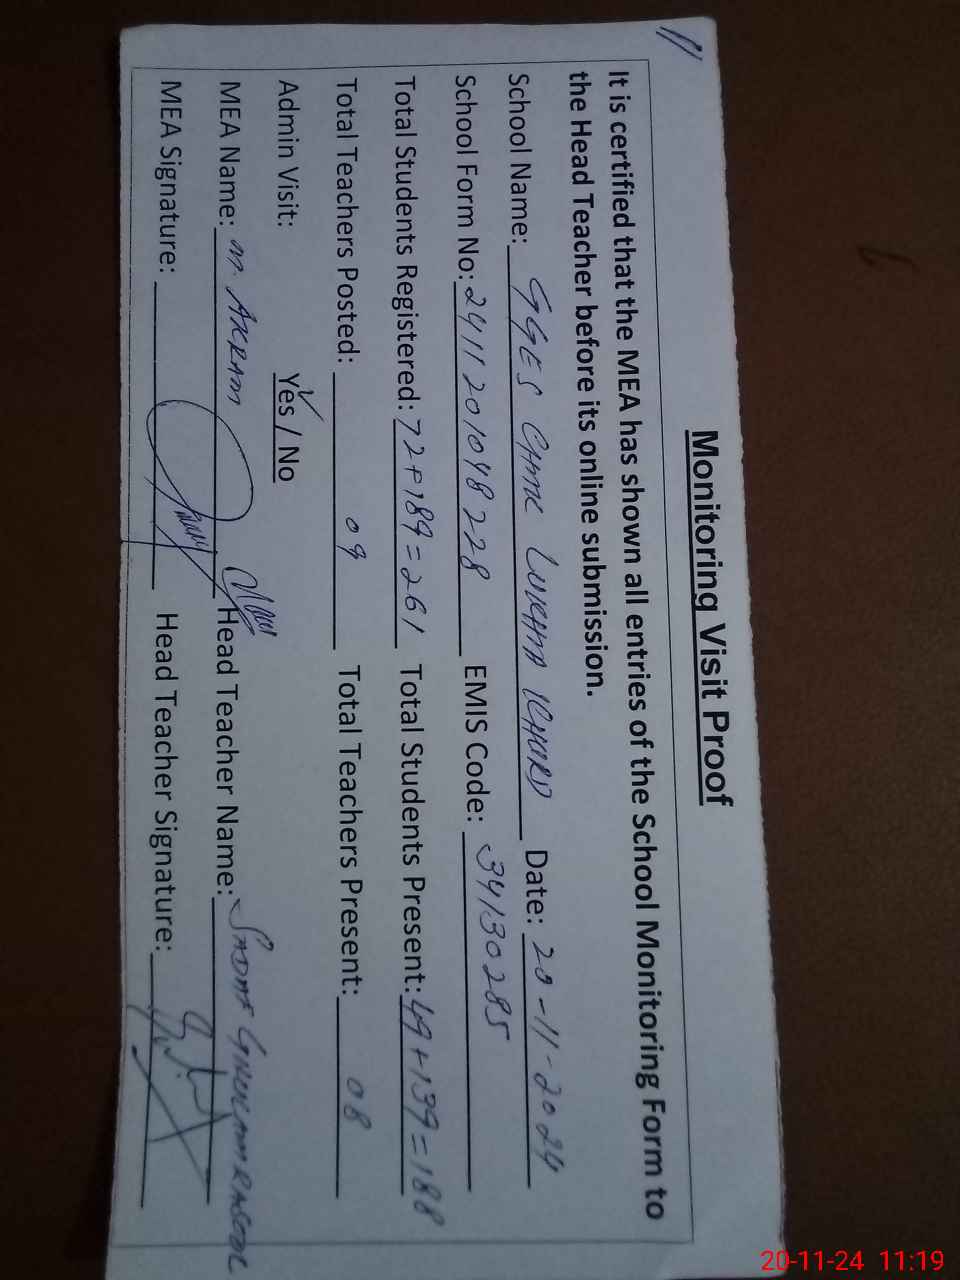 11
Monitoring Visit Proof
It is certified that the MEA has shown all entries of the School Monitoring Form to
the Head Teacher before its online submission.
School Name: GGES CHAK LUKHHA KHURD Date: 20-11-2024
School Form No: 2411201048228 EMIS Code: 34130285
Total Students Registered: 72+189=261 Total Students Present: 49+139=188
Total Teachers Posted: 09 Total Teachers Present: 08
Admin Visit: Yes / No
MEA Name: M. AKRAM Head Teacher Name: SADAF GHULAM RASOOL
MEA Signature: Head Teacher Signature:
20-11-24 11:19